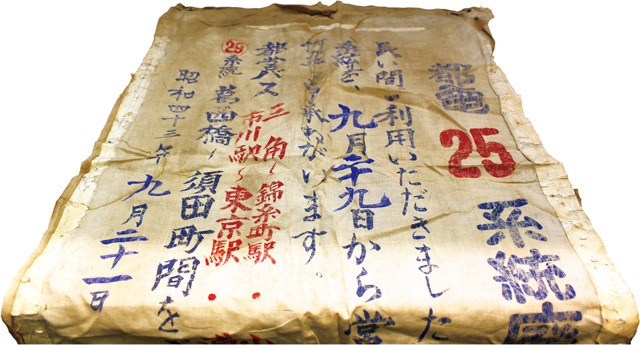 都電25系統
長い間ご利用いただきました
系統を、九月二十九日から営
ねがいます。
都営バス 三角〜錦糸町駅・
市川駅〜東京駅・
㉕系統 葛西橋〜須田町間を
昭和四十三年九月二十一日